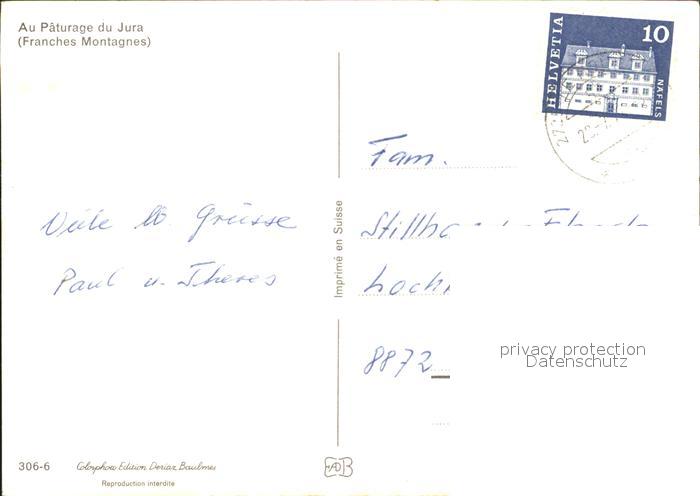 Au Pâturage du Jura
(Franches Montagnes)
HELVETIA
10
NÄFELS
Fam.
Viele lb. Grüsse
Paul u. Theres
Imprimé en Suisse
8872
privacy protection
Datenschutz
306-6
Colorphoto Edition Deriaz Baulmes
Reproduction interdite